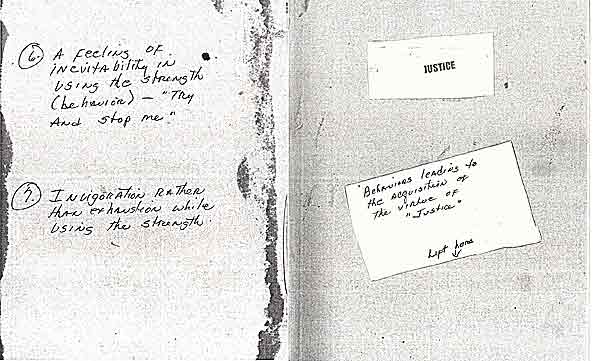 6. A feeling of
inevitability in
using the strength
(behavior) - "Try
and stop me."
7. Invigoration rather
than exhaustion while
using the strength.
JUSTICE
"Behaviors leading to
the acquisition of
the virtue of
"Justice"
Lift here